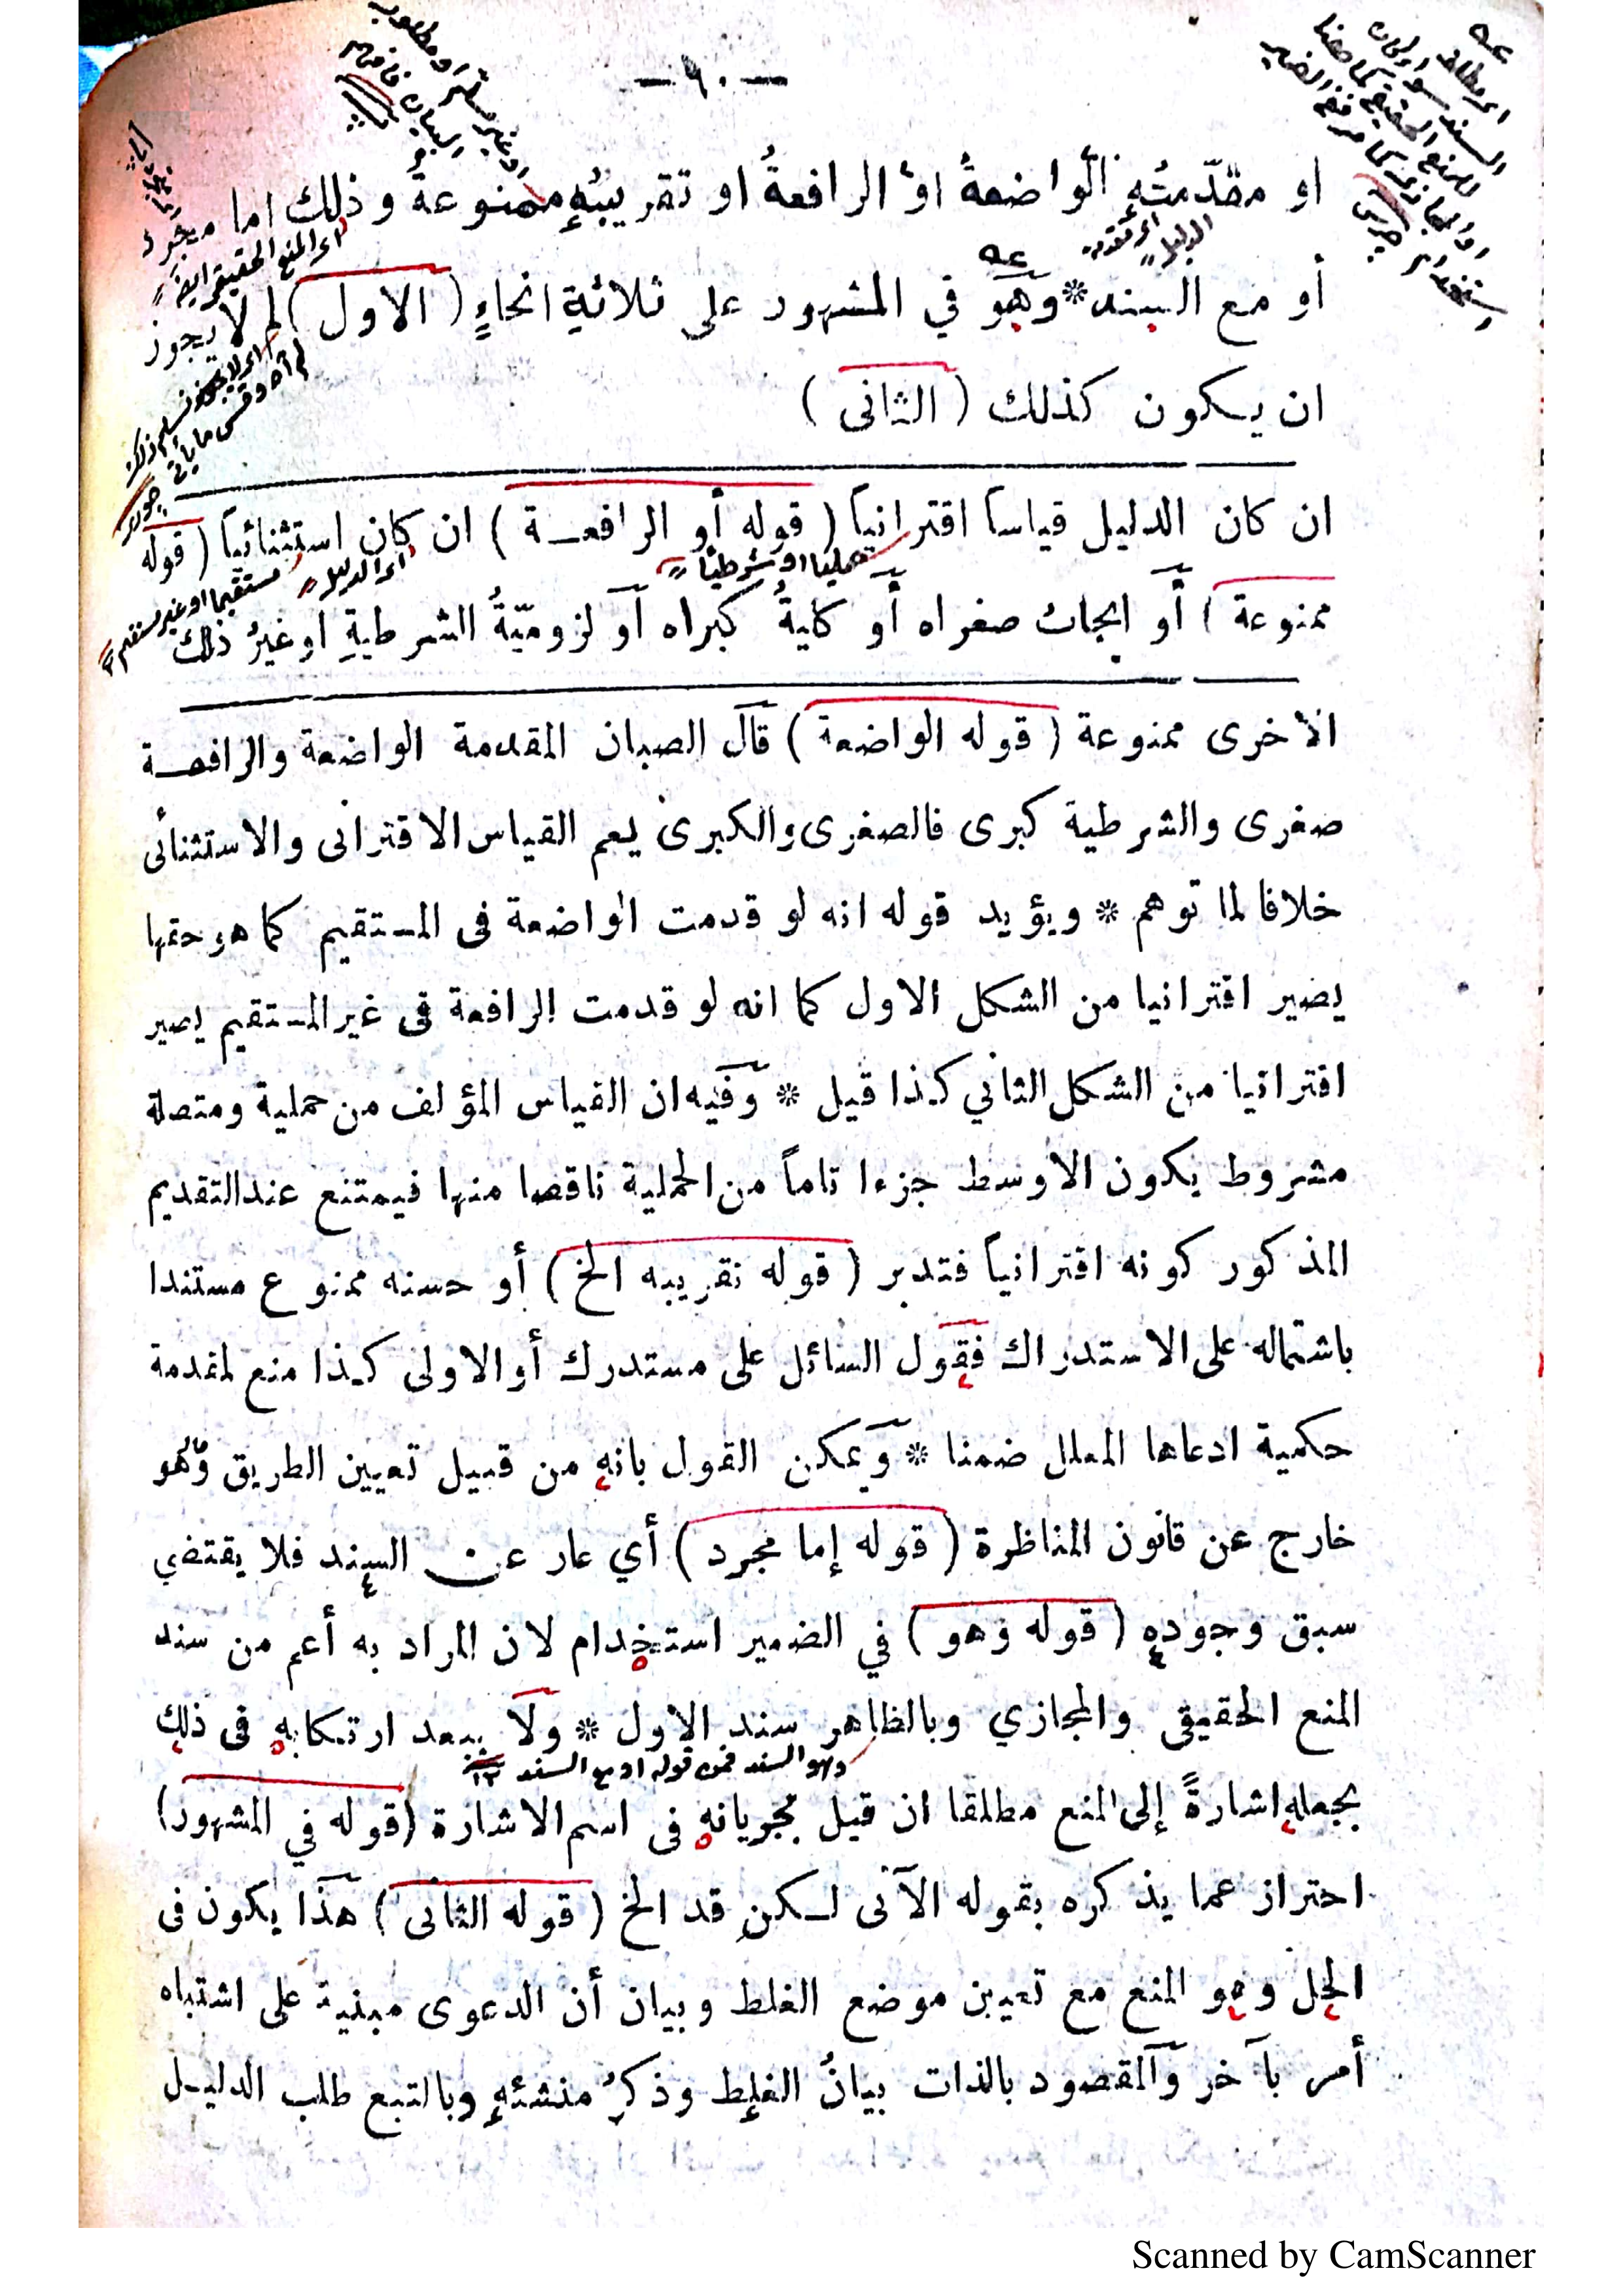 — ٩٠ —
او مقدّمتُه الواضعةُ او الرافعةُ او تقريبُه ممنوعة وذلك اما مجرد
أو مع السند * وهو في المشهور على ثلاثةِ انحاءٍ ( الاول ) لم لا يجوز
ان يكون كذلك ( الثانى )
ان كان الدليل قياساً اقترانياً ( قوله أو الرافعة ) ان كان استثنائياً ( قوله
ممنوعة ) أو ايجاب صغراه أو كليةُ كبراه أو لزوميّةُ الشرطيةِ او غيرُ ذلك
الاخرى ممنوعة ( قوله الواضعة ) قال الصبان المقدمة الواضعة والرافعة
صغرى والشرطية كبرى فالصغرى والكبرى يعم القياس الاقترانى والاستثنائى
خلافا لما توهم * ويؤيد قوله انه لو قدمت الواضعة فى المستقيم كما هو حقها
يصير اقترانيا من الشكل الاول كما انه لو قدمت الرافعة فى غير المستقيم يصير
اقترانيا من الشكل الثاني كذا قيل * وفيه ان القياس المؤلف من حملية ومتصلة
مشروط بكون الاوسط جزءا تاماً من الحملية ناقصا منها فيمتنع عند التقديم
المذكور كونه اقترانياً فتدبر ( قوله تقريبه الخ ) أو حسنه ممنوع مستندا
باشتماله على الاستدراك فقول السائل على مستدرك أو الاولى كذا منع لمقدمة
حكمية ادعاها المعلل ضمنا * ويمكن القول بانه من قبيل تعيين الطريق وهو
خارج عن قانون المناظرة ( قوله إما مجرد ) أي عار عن السند فلا يقتضي
سبق وجوده ( قوله وهو ) في الضمير استخدام لان المراد به أعم من سند
المنع الحقيقى والمجازي وبالظاهر سند الاول * ولا يبعد ارتكابه فى ذلك
وهو السند فى قوله او مع السند ١٢
بجعله اشارةً إلى المنع مطلقا ان قيل بجريانه فى اسم الاشارة ( قوله في المشهور )
احتراز عما يذكره بقوله الآتى لكن قد الخ ( قوله الثانى ) هذا يكون فى
الحل وهو المنع مع تعيين موضع الغلط وبيان أن الدعوى مبنية على اشتباه
أمر بآخر والمقصود بالذات بيانُ الغلط وذكرُ منشئهِ وبالتبع طلب الدليل
Scanned by CamScanner